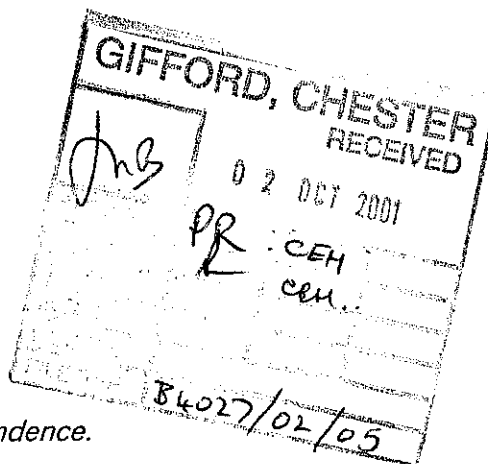 GIFFORD, CHESTER
RECEIVED
02 OCT 2001
PR : CEH
CEH..
B4027/02/05
ndence.